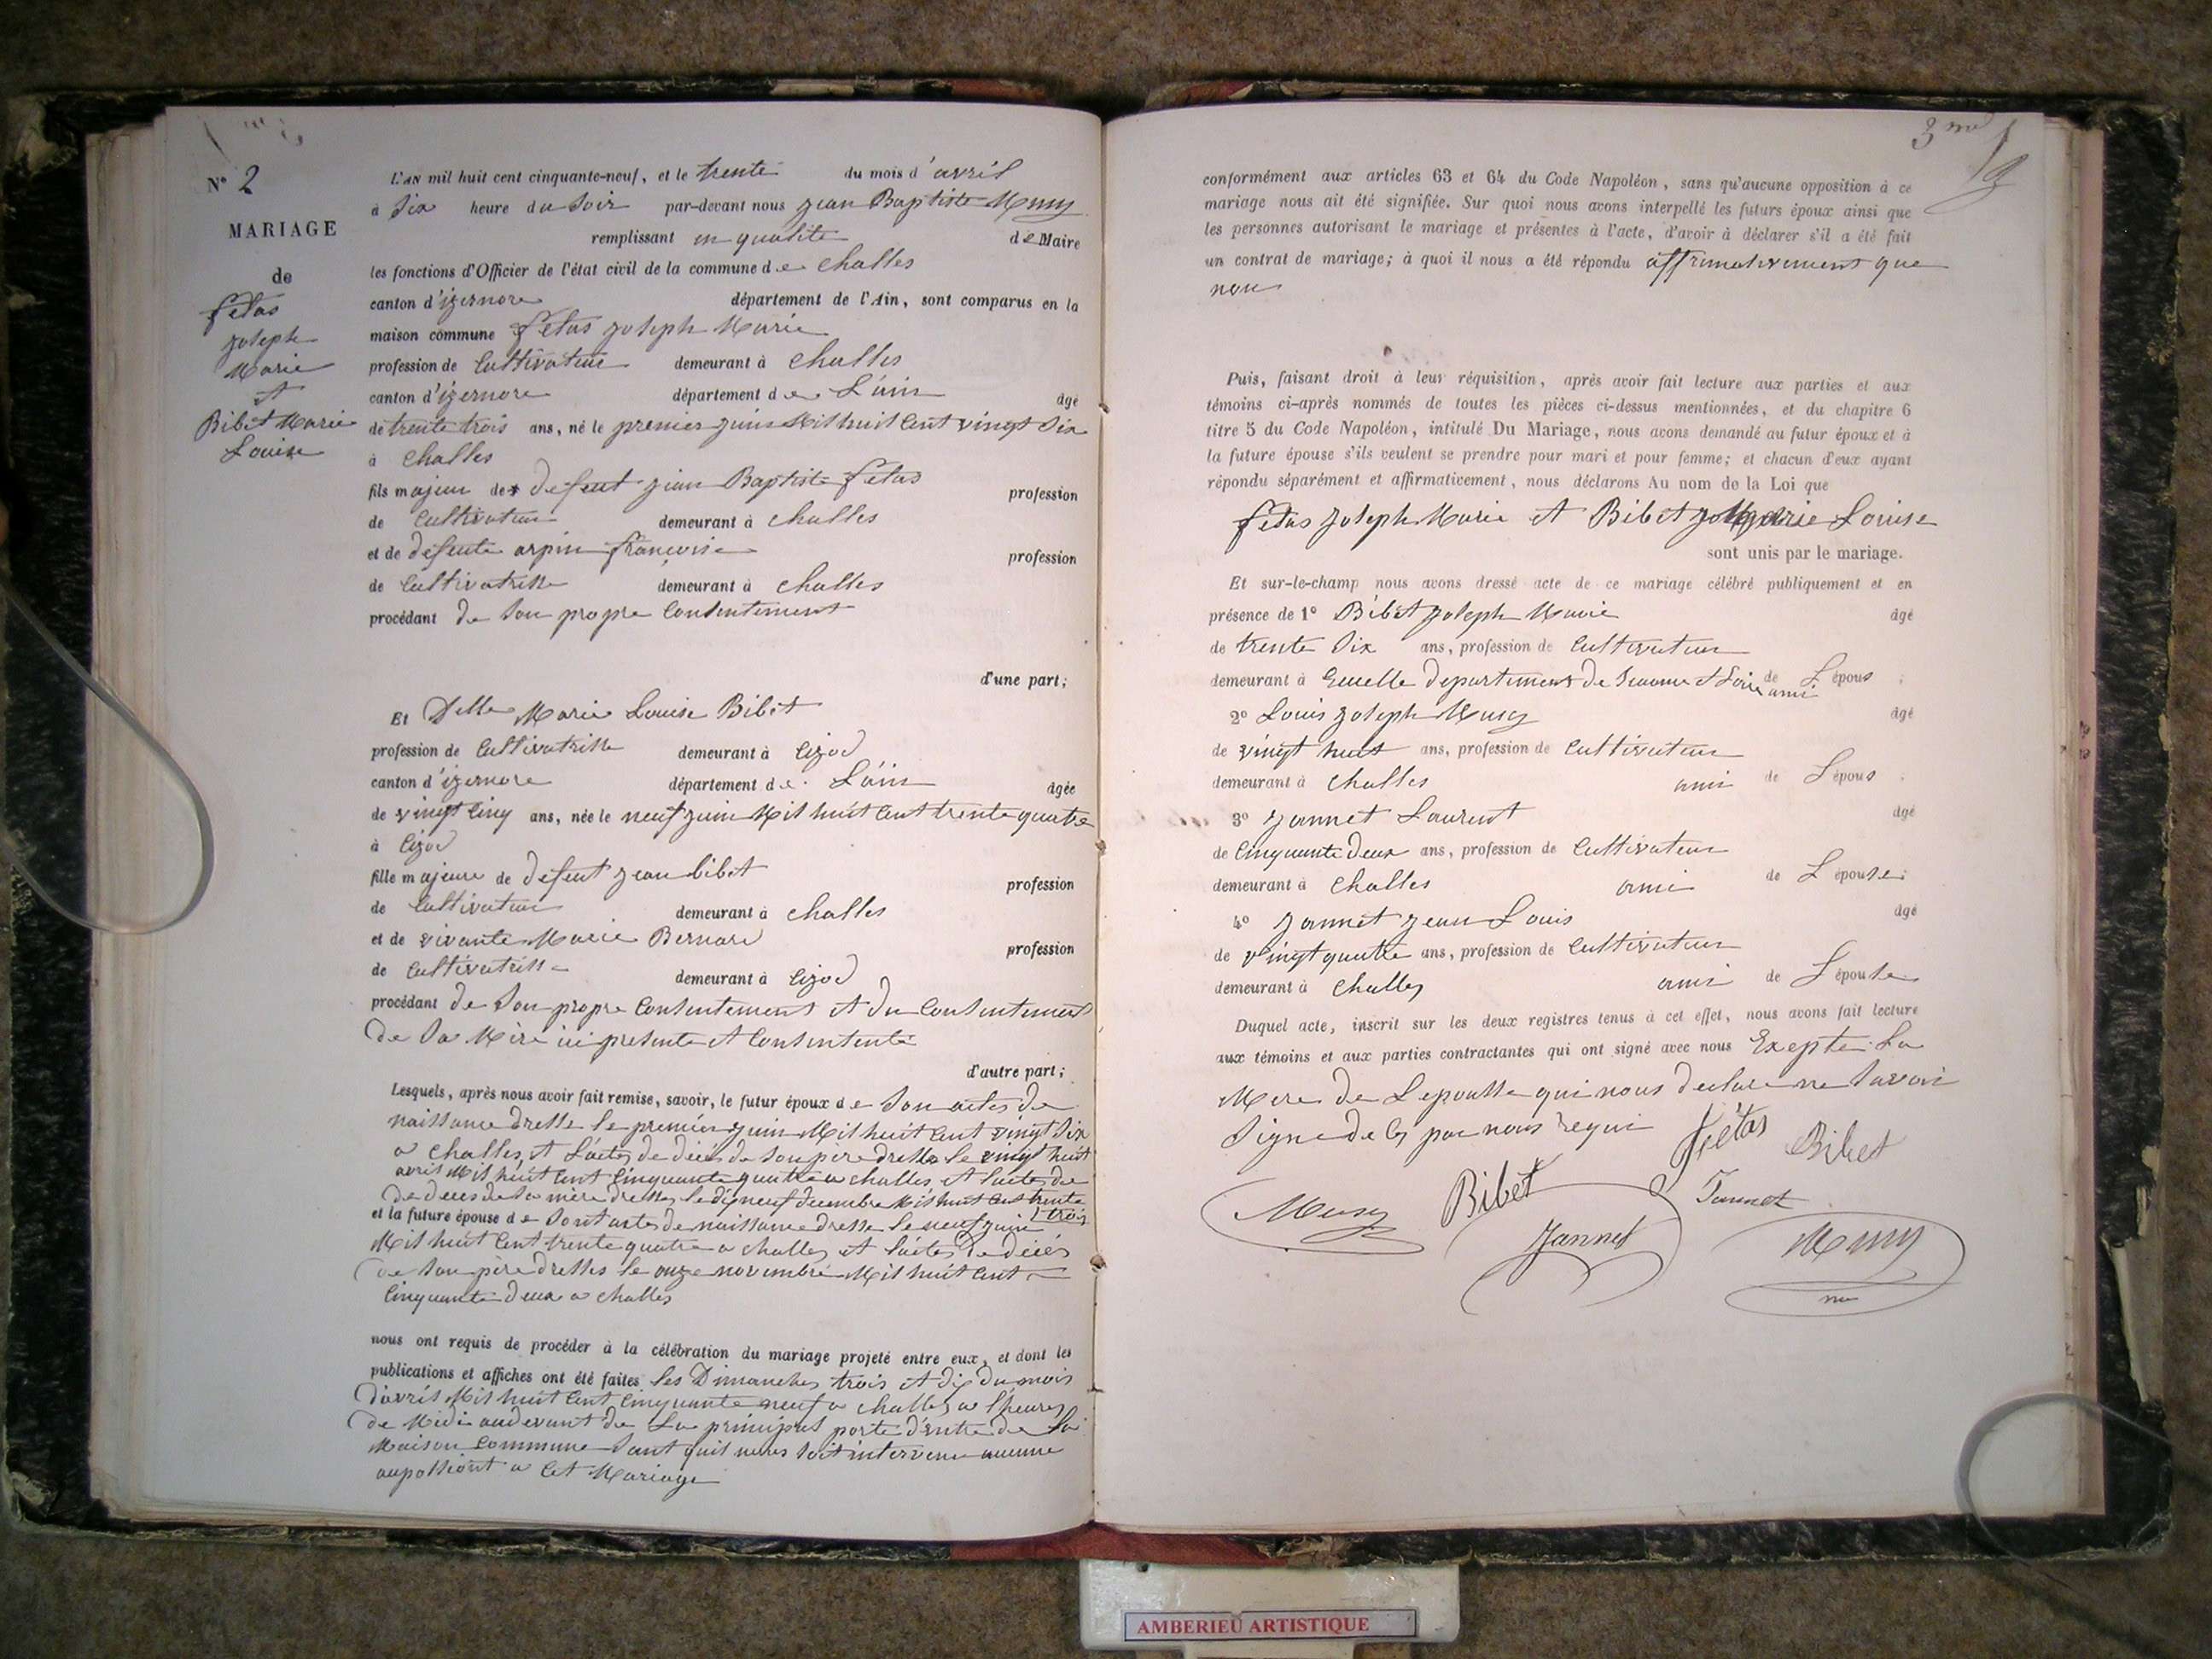 N° 2
MARIAGE
de
fétas
joseph
Marie
et
Bibet Marie
Louise
L'an mil huit cent cinquante-neuf, et le trente du mois d'avril
à Six heure du Soir par-devant nous jean Baptiste Musy
remplissant en qualité de Maire
les fonctions d'Officier de l'état civil de la commune de challes
canton d'izernore département de l'Ain, sont comparus en la
maison commune fétas joseph Marie
profession de Cultivateur demeurant à challes
canton d'izernore département de L'ain âgé
de trente trois ans, né le premier juin Mil huit Cent vingt Six
à challes
fils majeur de defeut jean Baptiste fétas profession
de Cultivateur demeurant à challes
et de défeute arpin françoise profession
de Cultivatrisse demeurant à challes
procédant de Son propre Consentement
d'une part;
Et Delle Marie Louise Bibet
profession de Cultivatrisse demeurant à Cizod
canton d'izernore département de L'ain âgée
de vingt Cinq ans, née le neuf juin Mil huit Cent trente quatre
à Cizod
fille majeure de defeut jean bibet profession
de Cultivateur demeurant à challes
et de vivante Marie Bernard profession
de Cultivatrisse demeurant à Cizod
procédant de Son propre Consentement et du Consentement
de Sa Mère ici presente et Consentente
d'autre part;
Lesquels, après nous avoir fait remise, savoir, le futur époux de Son actes de
naissance dresse le premier juin Mil huit Cent vingt Six
a challes, et L'actes de décés de Son pere dresse le vingt huit
avril Mil huit Cent Cinquante quatre a challes et L'actes de
de deces de Sa mère dresses le dix neuf decembre Mil huit Cent trente
trois
et la future épouse de Sont actes de naissance dresse le neuf juin
Mil huit Cent trente quatre a challes et L'actes de décés
de Son père dresses le onze novembre Mil huit Cent
Cinquante deux a challes
nous ont requis de procéder à la célébration du mariage projeté entre eux, et dont les
publications et affiches ont été faites les Dimanches trois et dix du mois
d'avril Mil huit Cent Cinquante neuf a challes a l'heures
de Midi audevant de La principal porte d'entre de La
Maison Commune Sant quil nous Soit intervenu aucune
aupossiont a Cet Mariage
3me
conformément aux articles 63 et 64 du Code Napoléon, sans qu'aucune opposition à ce
mariage nous ait été signifiée. Sur quoi nous avons interpellé les futurs époux ainsi que
les personnes autorisant le mariage et présentes à l'acte, d'avoir à déclarer s'il a été fait
un contrat de mariage; à quoi il nous a été répondu affirmativement que
non
Puis, faisant droit à leur réquisition, après avoir fait lecture aux parties et aux
témoins ci-après nommés de toutes les pièces ci-dessus mentionnées, et du chapitre 6
titre 5 du Code Napoléon, intitulé Du Mariage, nous avons demandé au futur époux et à
la future épouse s'ils veulent se prendre pour mari et pour femme; et chacun d'eux ayant
répondu séparément et affirmativement, nous déclarons Au nom de la Loi que
fétas joseph Marie et Bibet Marie Louise
sont unis par le mariage.
Et sur-le-champ nous avons dressé acte de ce mariage célébré publiquement et en
présence de 1° Bibet joseph Marie âgé
de trente Six ans, profession de Cultivateur
demeurant à departement de Soaune et Loire ami de L'épous;
2° Louis joseph Musy âgé
de vingt huit ans, profession de Cultivateur
demeurant à challes ami de L'épous.
3° jannet Laurent âgé
de Cinquante deux ans, profession de Cultivateur
demeurant à challes ami de L'épouse;
4° jannet jean Louis âgé
de vingt quatre ans, profession de Cultivateur
demeurant à challes ami de L'épouse
Duquel acte, inscrit sur les deux registres tenus à cet effet, nous avons fait lecture
aux témoins et aux parties contractantes qui ont signé avec nous Exepte La
Mere de Lepousse qui nous declare ne Savoir
Signe de Ce par nous requi
fétas Bibet
Musy Bibet Jannet
Jannet Musy
AMBERIEU ARTISTIQUE